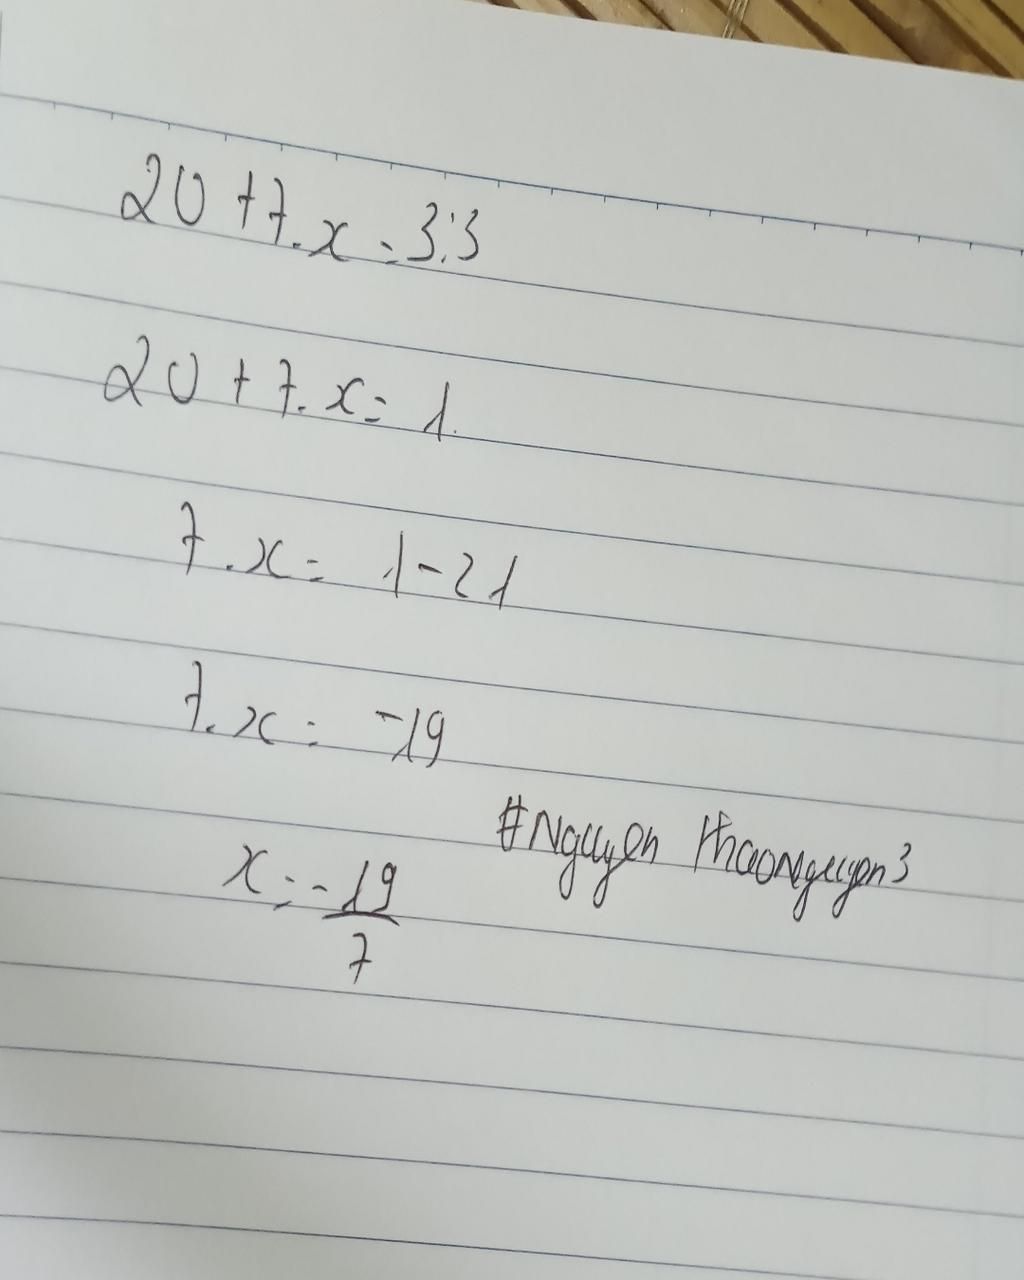 20 + 7.x = 3:3
20 + 7.x = 1
7.x = 1-21
7.x = -19
#Nguyen ThaoNguyen3
x = -19/7